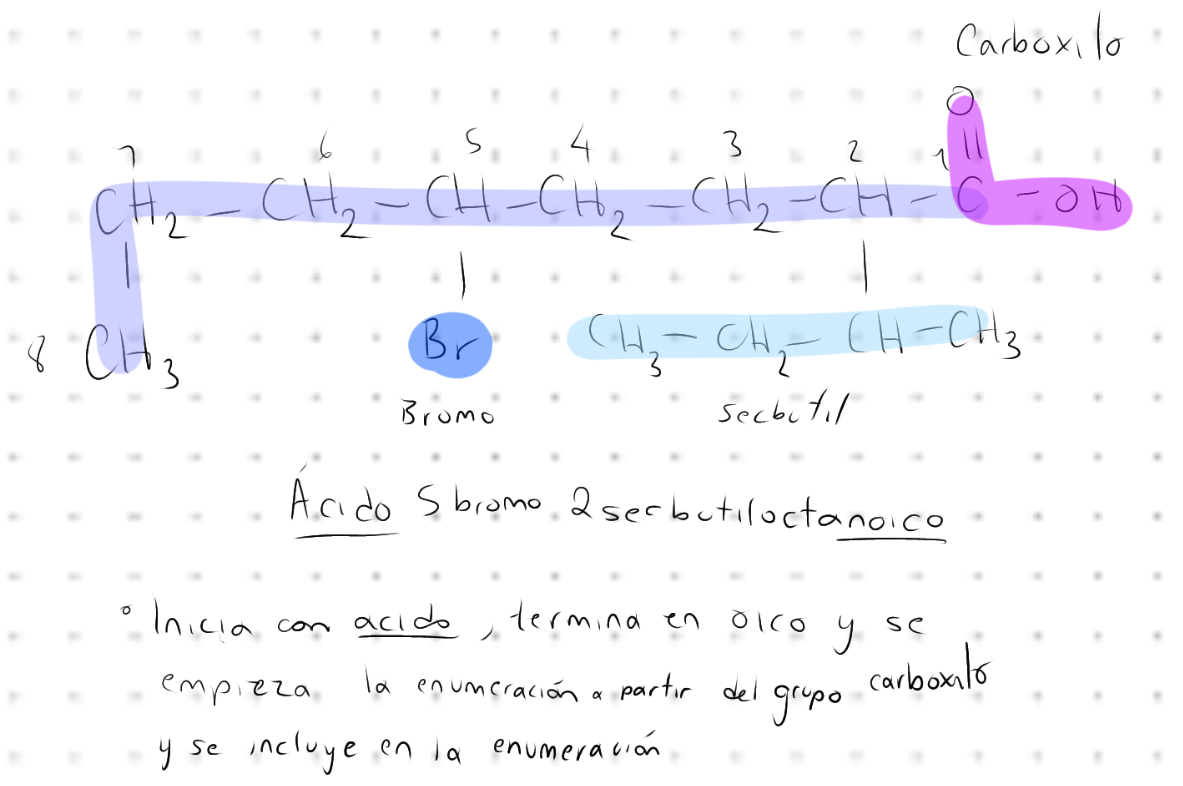 Carboxilo
O
7 6 5 4 3 2 1 ||
CH2 - CH2 - CH - CH2 - CH2 - CH - C - OH
| | |
8 CH3 Br CH3 - CH2 - CH - CH3
Bromo secbutil
Ácido 5 bromo 2 secbutiloctanoico
° Inicia con acido, termina en oico y se
empieza la enumeración a partir del grupo carboxilo
y se incluye en la enumeración